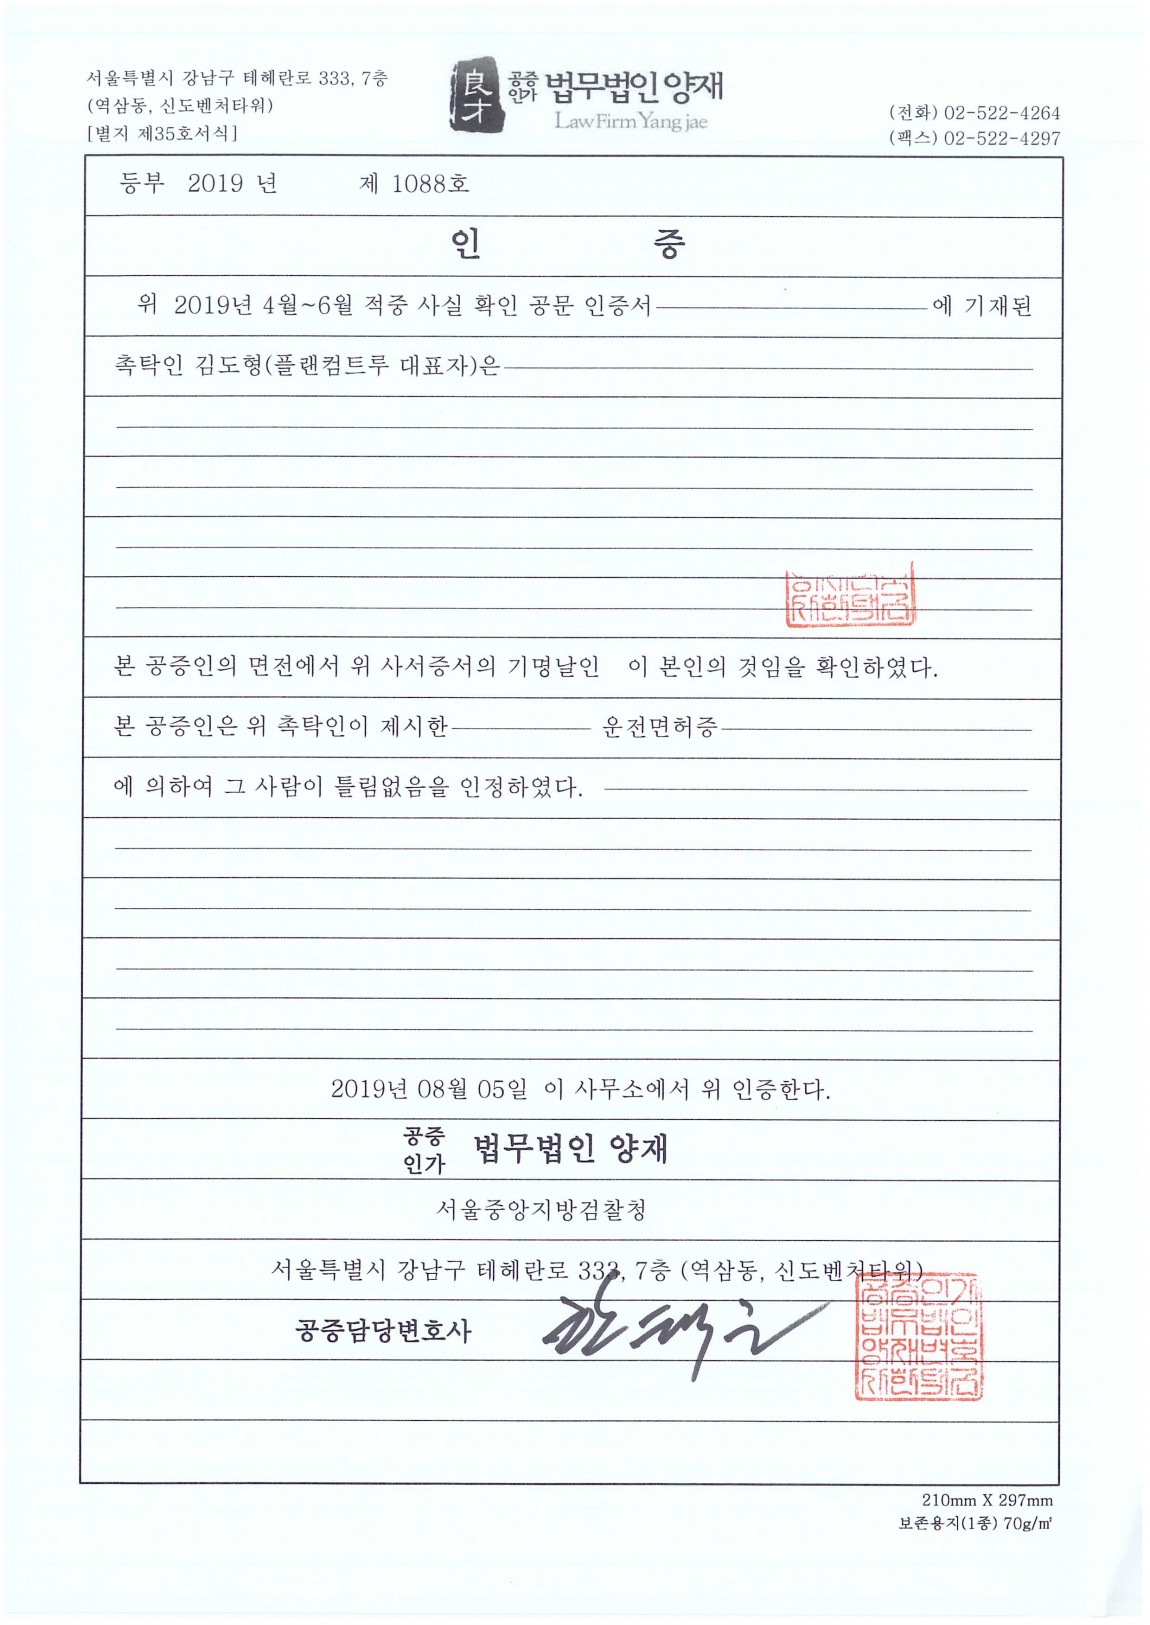 서울특별시 강남구 테헤란로 333, 7층
(역삼동, 신도벤처타워)
[별지 제35호서식]
良才
공증인가 법무법인 양재
Law Firm Yang jae
(전화) 02-522-4264
(팩스) 02-522-4297
등부 2019 년 제 1088호
인 증
위 2019년 4월~6월 적중 사실 확인 공문 인증서 에 기재된
촉탁인 김도형(플랜컴트루 대표자)은
본 공증인의 면전에서 위 사서증서의 기명날인 이 본인의 것임을 확인하였다.
본 공증인은 위 촉탁인이 제시한 운전면허증
에 의하여 그 사람이 틀림없음을 인정하였다.
2019년 08월 05일 이 사무소에서 위 인증한다.
공증인가 법무법인 양재
서울중앙지방검찰청
서울특별시 강남구 테헤란로 333, 7층 (역삼동, 신도벤처타워)
공증담당변호사
210mm X 297mm
보존용지(1종) 70g/㎡